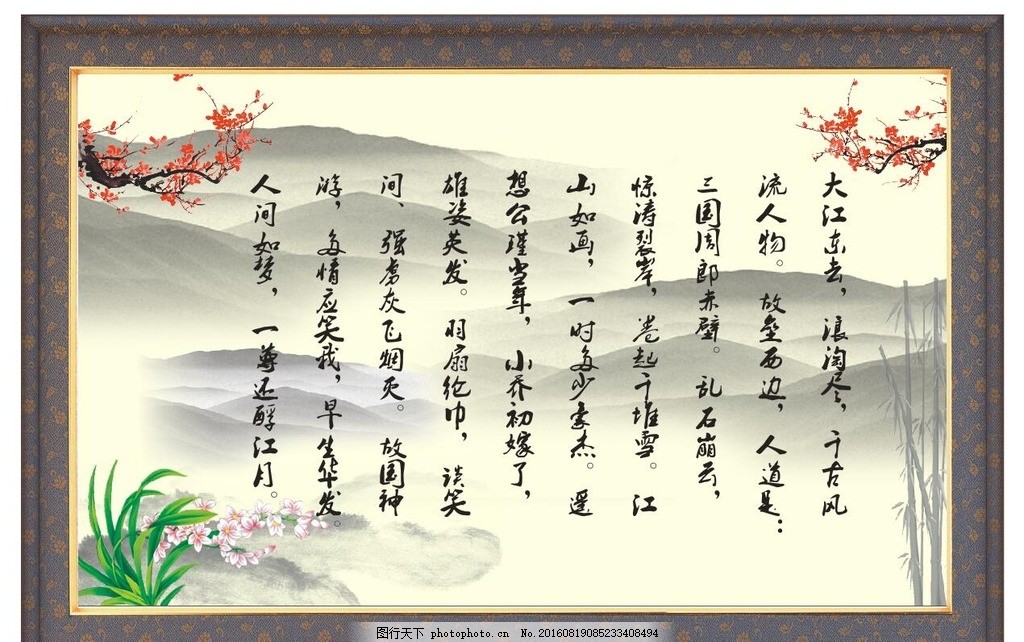 大江东去，浪淘尽，千古风
流人物。故垒西边，人道是：
三国周郎赤壁。乱石崩云，
惊涛裂岸，卷起千堆雪。江
山如画，一时多少豪杰。遥
想公瑾当年，小乔初嫁了，
雄姿英发。羽扇纶巾，谈笑
间、强虏灰飞烟灭。故国神
游，多情应笑我，早生华发。
人间如梦，一尊还酹江月。
图行天下 photophoto.cn No.20160819085233408494